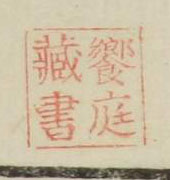 饗庭
藏書